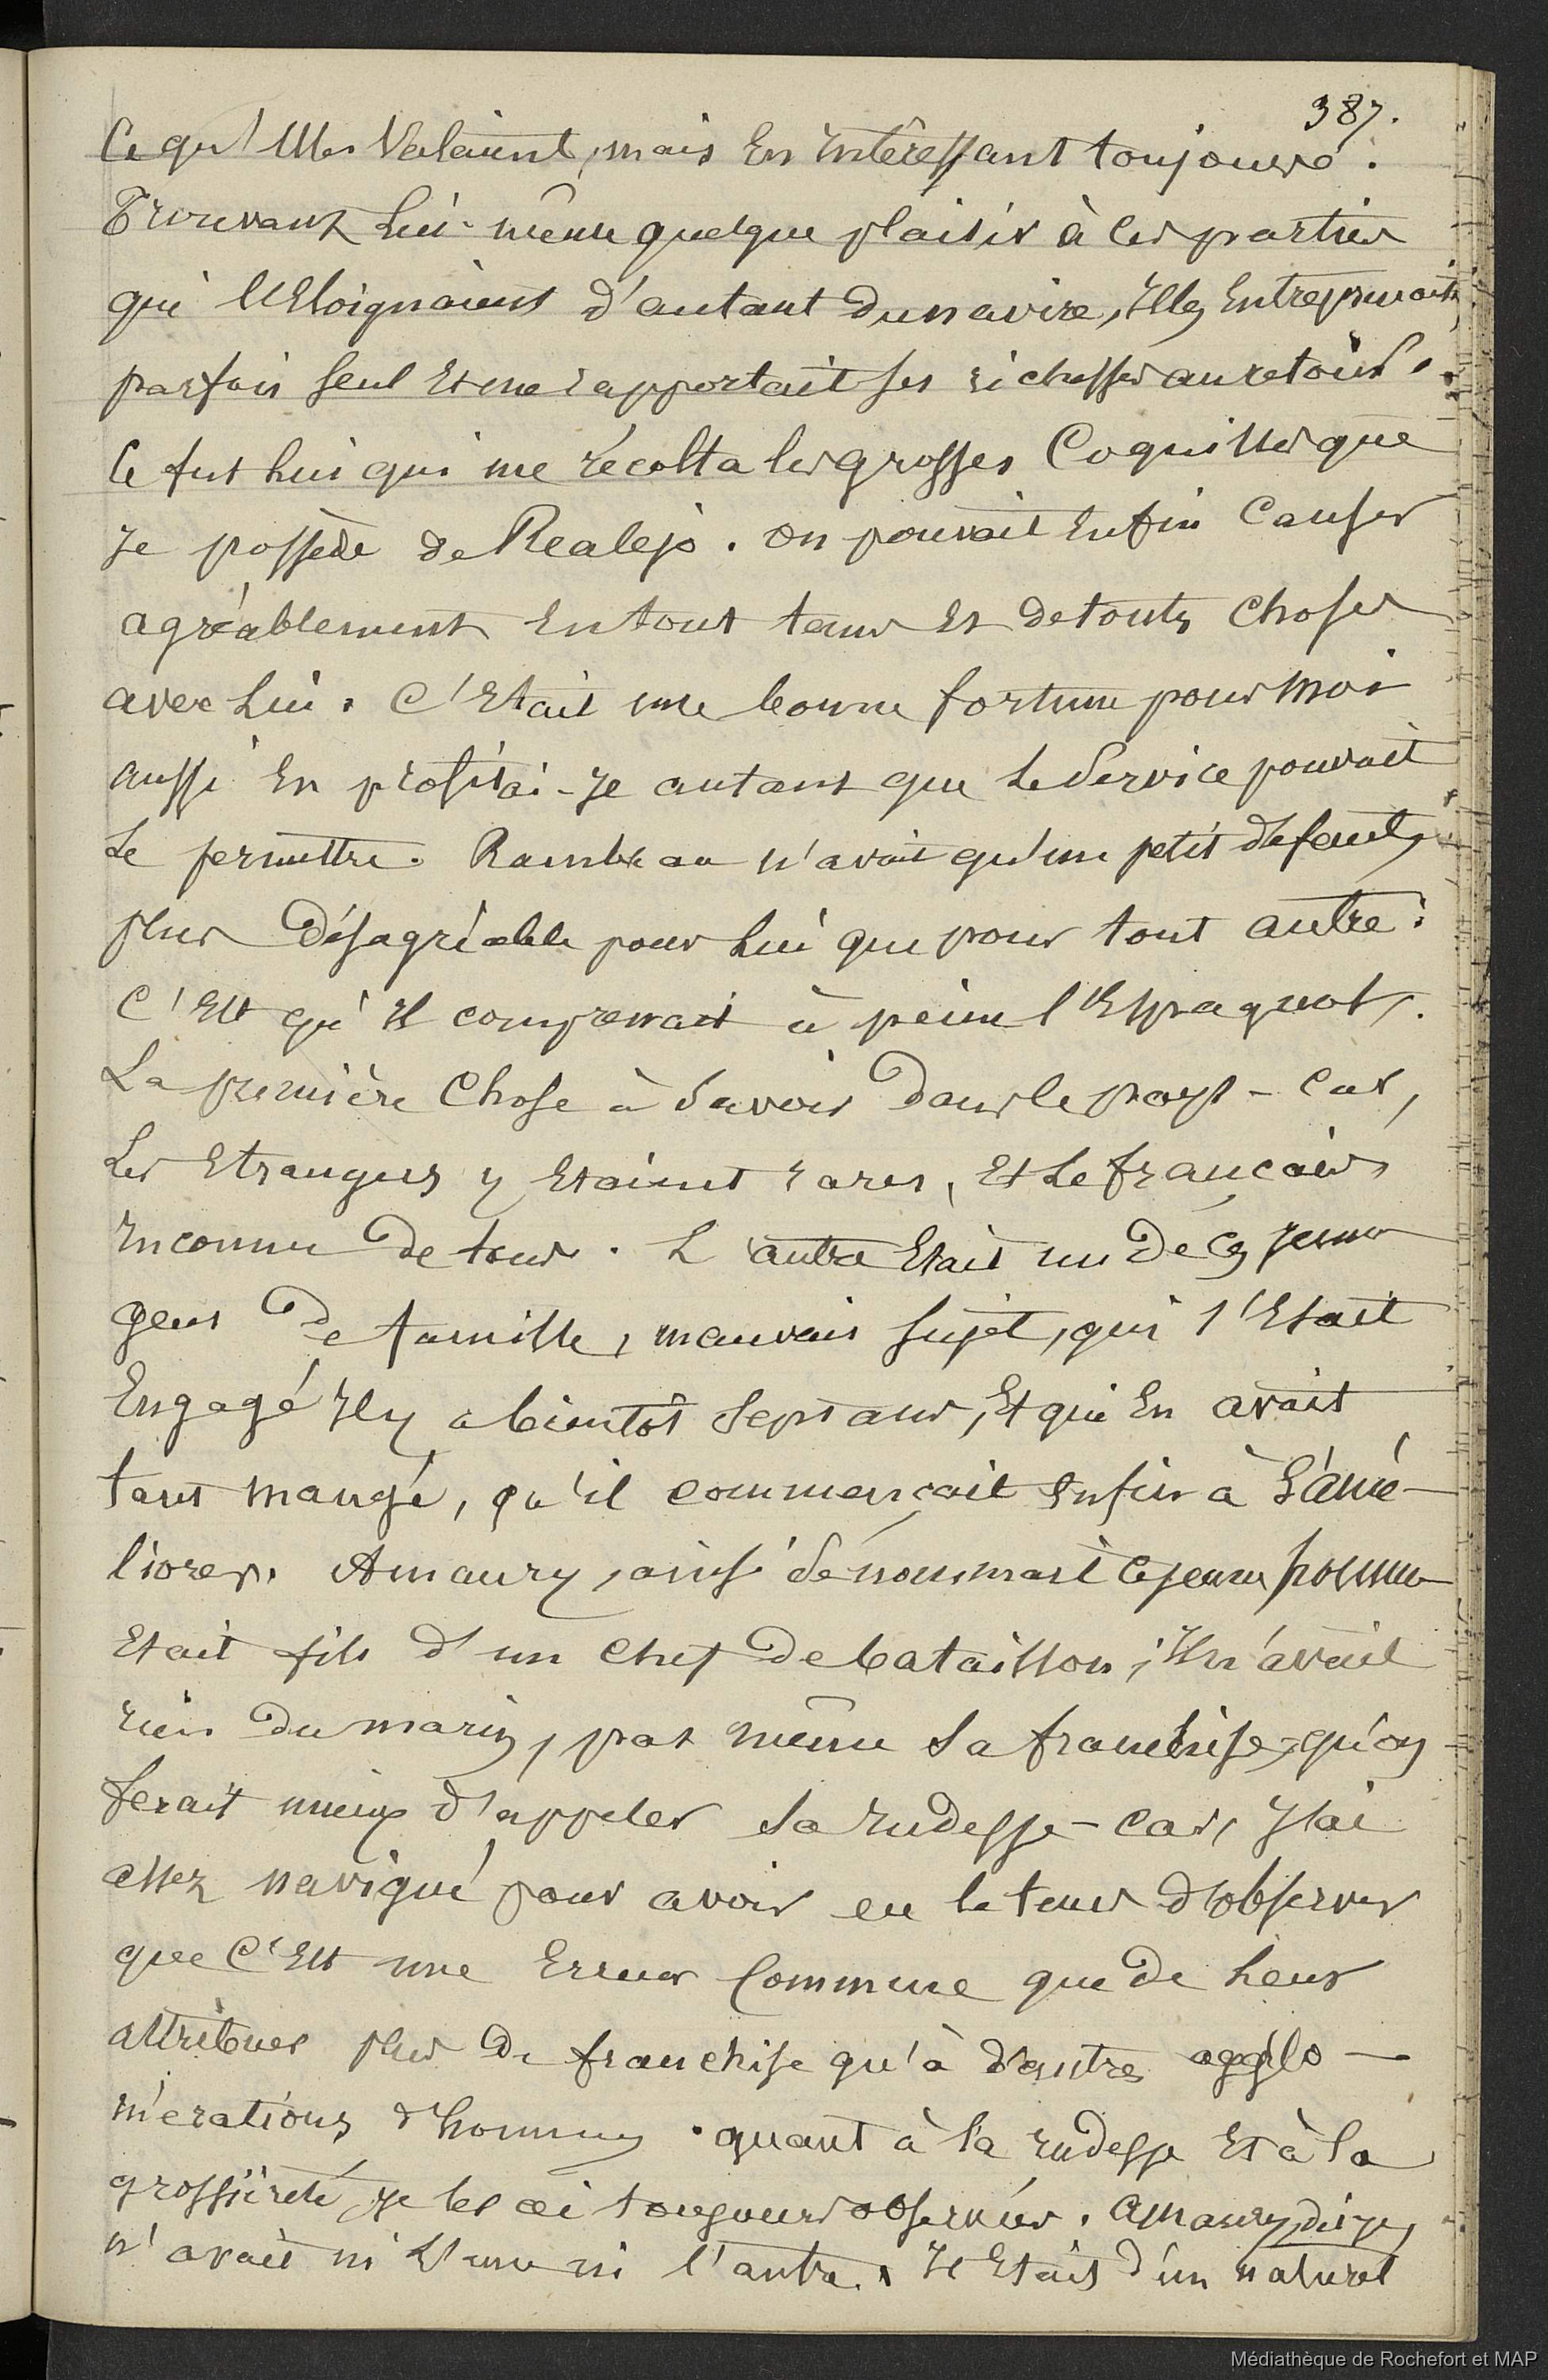 387.
Ce qu'elles valaient, mais en intéressant toujours.
Trouvant lui-même quelque plaisir à ces parties
qui l'éloignaient d'autant du navire, il les entreprenait
parfois seul et me rapportait ses richesses au retour.
Ce fut lui qui me récolta les grosses coquilles que
je possède de Realejo. On pouvait enfin causer
agréablement en tout tems et de toutes choses
avec lui. C'était une bonne fortune pour moi
aussi en profitai-je autant que le service pouvait
le permettre. Rambeau n'avait qu'un petit défaut,
plus désagréable pour lui que pour tout autre :
c'est qu'il comprenait à peine l'Espagnol,
La première chose à savoir dans le pays - car,
les étrangers y étaient rares, et le français
inconnu de tous. L'autre était un de ces jeunes
gens de famille, mauvais sujet, qui s'était
engagé il y a bientôt sept ans, et qui en avait
tant mangé, qu'il commençait enfin à s'amé-
liorer. Amaury, ainsi se nommait ce jeune homme
était fils d'un chef de bataillon ; il n'avait
rien du marin, pas même sa franchise, qu'on
ferait mieux d'appeler sa rudesse - car, j'ai
assez navigué pour avoir eu le tems d'observer
que c'est une erreur commune que de leur
attribuer plus de franchise qu'à d'autres agglo-
mérations d'hommes. quant à la rudesse et à la
grossièreté, je les ai toujours observées. Amaury, dis-je,
n'avait ni l'une ni l'autre. Il était d'un naturel
Médiathèque de Rochefort et MAP